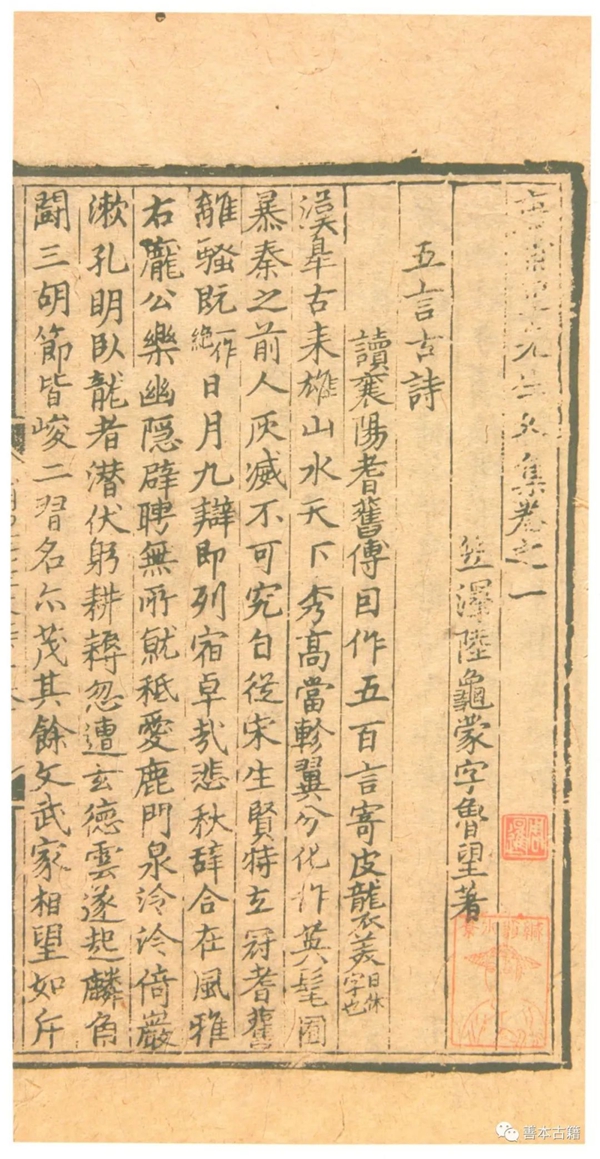 先生文集卷之一
笠澤陸龜蒙字魯望著
五言古詩
讀襄陽耆舊傳因作五百言寄皮襲美日休字也
漢皋古來雄山水天下秀高當軫翼分化作英髦囿
暴秦之前人灰滅不可究自從宋生賢特立冠耆舊
離騷既一作絕日月九辯即列宿卓哉悲秋辞合在風雅
右龐公樂幽隱辟聘無所就秪愛鹿門泉泠泠倚巖
漱孔明臥龍者潜伏躬耕耨忽遭玄德雲遂起麟角
鬪三胡節皆峻二習名亦茂其餘文武家相望如斥
善本古籍